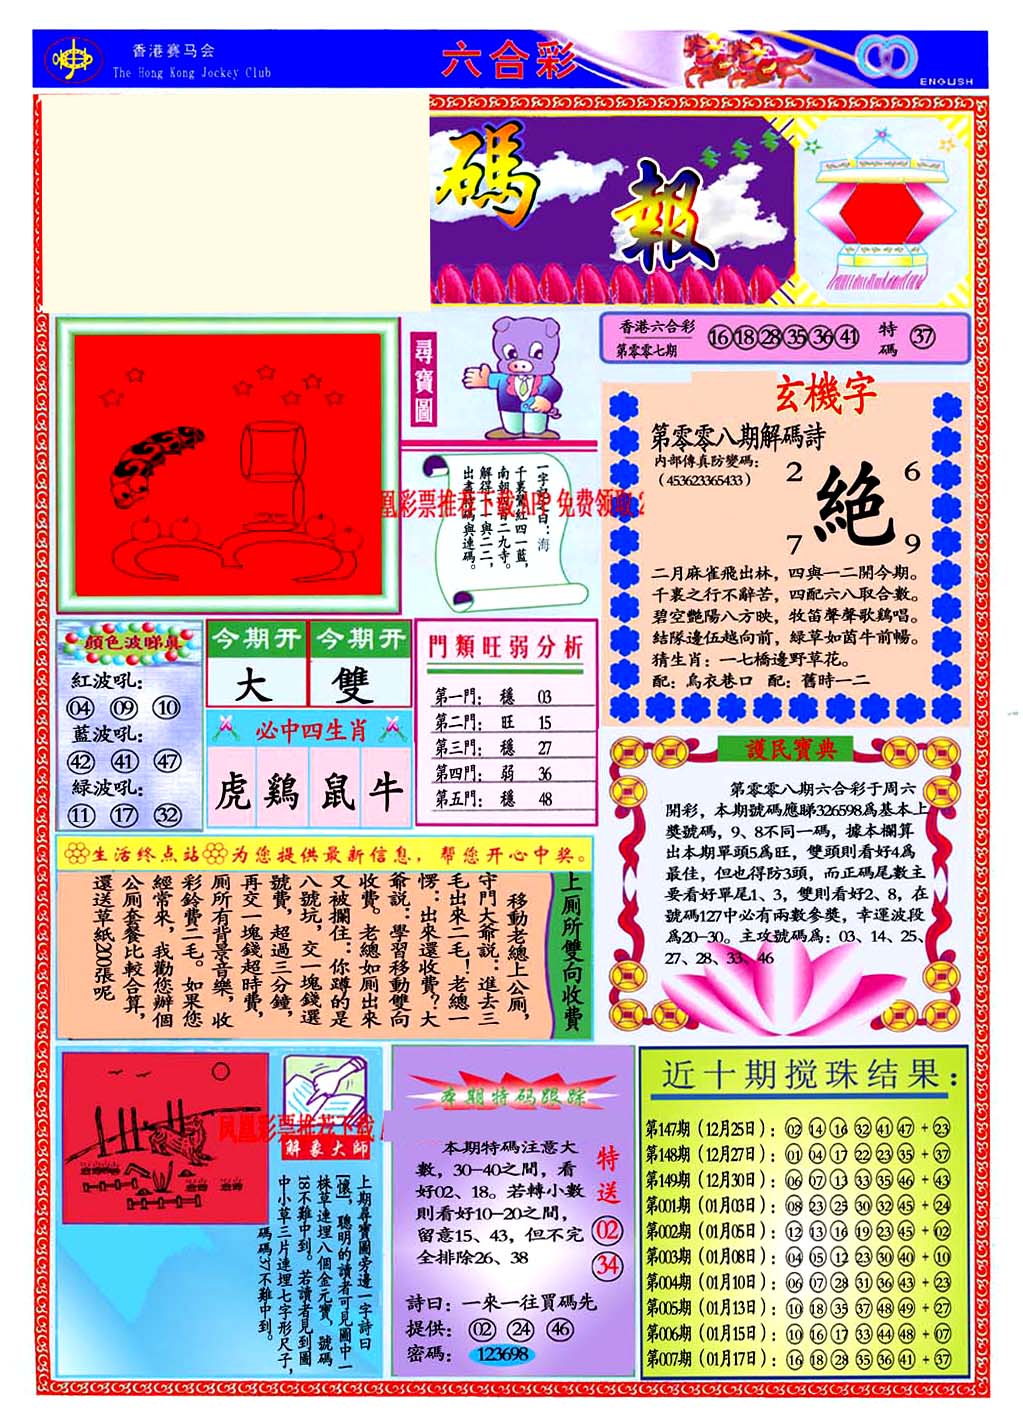 香港赛马会
The Hong Kong Jockey Club
六合彩
ENGLISH
碼報
尋寶圖
香港六合彩
第零零七期
16 18 28 35 36 41
特碼
37
玄機字
第零零八期解碼詩
内部傳真防變碼：
（453623365433）
2 6
絕
7 9
二月麻雀飛出林，四與一二開今期。
千裏之行不辭苦，四配六八取合數。
碧空艷陽八方映，牧笛聲聲歌鷄唱。
結隊邊伍越向前，緑草如茵牛前暢。
猜生肖：一七橋邊野草花。
配：烏衣巷口 配：舊時一二
一字記之曰：海
千裏鶯紅四一藍，
南朝四百二九寺。
解得一一與二二，
凰彩票推荐下载APP 免费领取2
顔色波睇真
紅波吼：
04 09 10
藍波吼：
42 41 47
緑波吼：
11 17 32
今期开 今期开
大 雙
必中四生肖
虎 鷄 鼠 牛
門類旺弱分析
第一門： 穩 03
第二門： 旺 15
第三門： 穩 27
第四門： 弱 36
第五門： 穩 48
護民寶典
第零零八期六合彩于周六
開彩，本期號碼應睇326598爲基本上
獎號碼，9、8不同一碼，據本欄算
出本期單頭5爲旺，雙頭則看好4爲
最佳，但也得防3頭，而正碼尾數主
要看好單尾1、3，雙則看好2、8，在
號碼127中必有兩數參獎，幸運波段
爲20—30。主攻號碼爲：03、14、25、
27、28、33、46
生活终点站 为您提供最新信息，帮您开心中奖。
上厠所雙向收費
移動老總上公厠，
守門大爺説：進去三
毛出來二毛！老總一
愣：出來還收費？大
爺説：學習移動雙向
收費。老總如厠出來
又被攔住：你蹲的是
八號坑，交一塊錢選
號費，超過三分鐘，
再交一塊錢超時費，
厠所有背景音樂，收
彩鈴費二毛。如果您
經常來，我勸您辦個
公厠套餐比較合算，
還送草紙200張呢
凤凰彩票推荐下载
解象大師
上期尋寶圖旁邊一字詩曰
「懷」，聰明的讀者可見圖中一
株草連埋八個金元寶，號碼
18不難中到。若讀者見到圖
中小草三片連埋七字形尺子，
碼碼37不難中到。
本期特码跟踪
本期特碼注意大
數，30—40之間，看
好02、18。若轉小數
則看好10—20之間，
留意15、43，但不完
全排除26、38
特送
02
34
詩曰：一來一往買碼先
提供： 02 24 46
密碼： 123698
近十期搅珠结果：
第147期（12月25日）：02 14 16 32 41 47 + 23
第148期（12月27日）：01 04 17 22 23 35 + 37
第149期（12月30日）：06 07 13 33 35 46 + 43
第001期（01月03日）：08 23 25 30 32 45 + 24
第002期（01月05日）：12 13 16 19 23 45 + 02
第003期（01月08日）：04 05 12 23 30 40 + 10
第004期（01月10日）：06 07 28 31 36 43 + 23
第005期（01月13日）：10 18 35 37 48 49 + 27
第006期（01月15日）：10 16 17 33 44 48 + 07
第007期（01月17日）：16 18 28 35 36 41 + 37